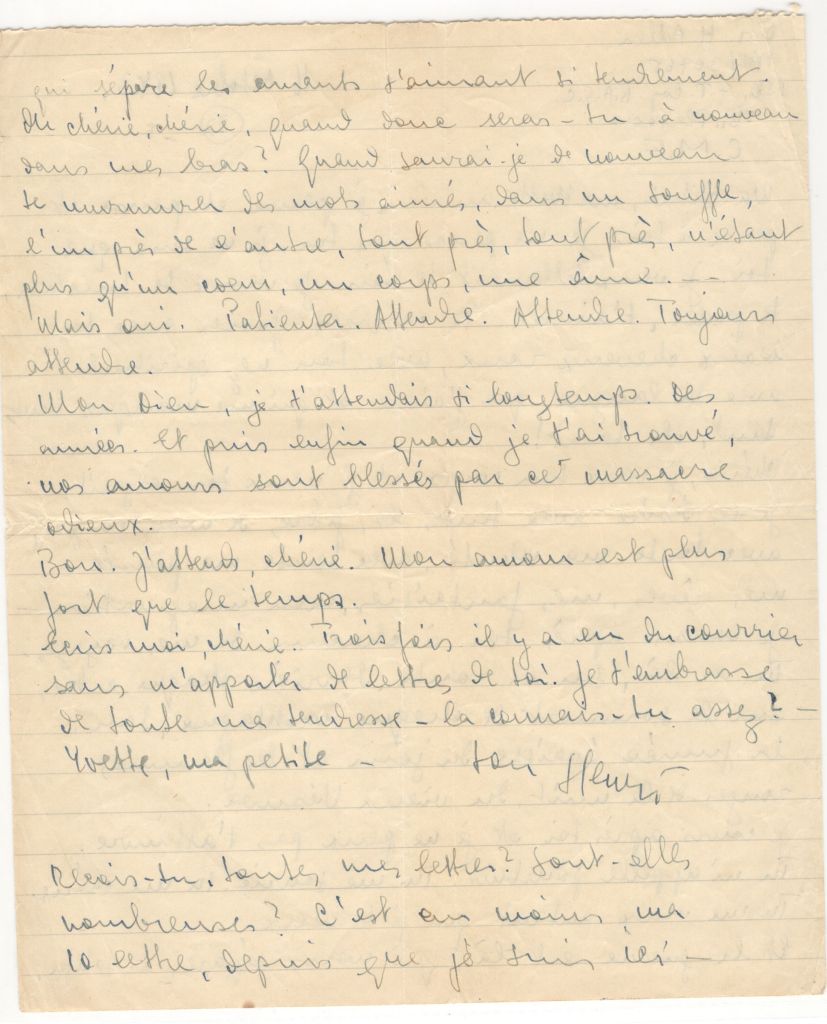 qui sépare les amants s'aimant si tendrement.
Oh chérie, chérie, quand donc seras-tu à nouveau
dans mes bras? Quand saurai-je de nouveau
te murmurer des mots aimés, dans un souffle,
l'un près de l'autre, tout près, tout près, n'étant
plus qu'un coeur, un corps, une âme. - -
Mais oui. Patienter. Attendre. Attendre. Toujours
attendre.
Mon Dieu, je t'attendais si longtemps. Des
années. Et puis enfin quand je t'ai trouvé,
nos amours sont blessés par ce massacre
odieux.
Bon. J'attends, chérie. Mon amour est plus
fort que le temps.
Ecris moi, chérie. Trois fois il y a eu du courrier
sans m'apporter de lettres de toi. Je t'embrasse
de toute ma tendresse - la connais-tu assez? -
Yvette, ma petite - ton Henri
Reçois-tu, toutes mes lettres? Sont-elles
nombreuses? C'est au moins ma
10 lettre, depuis que je suis ici -